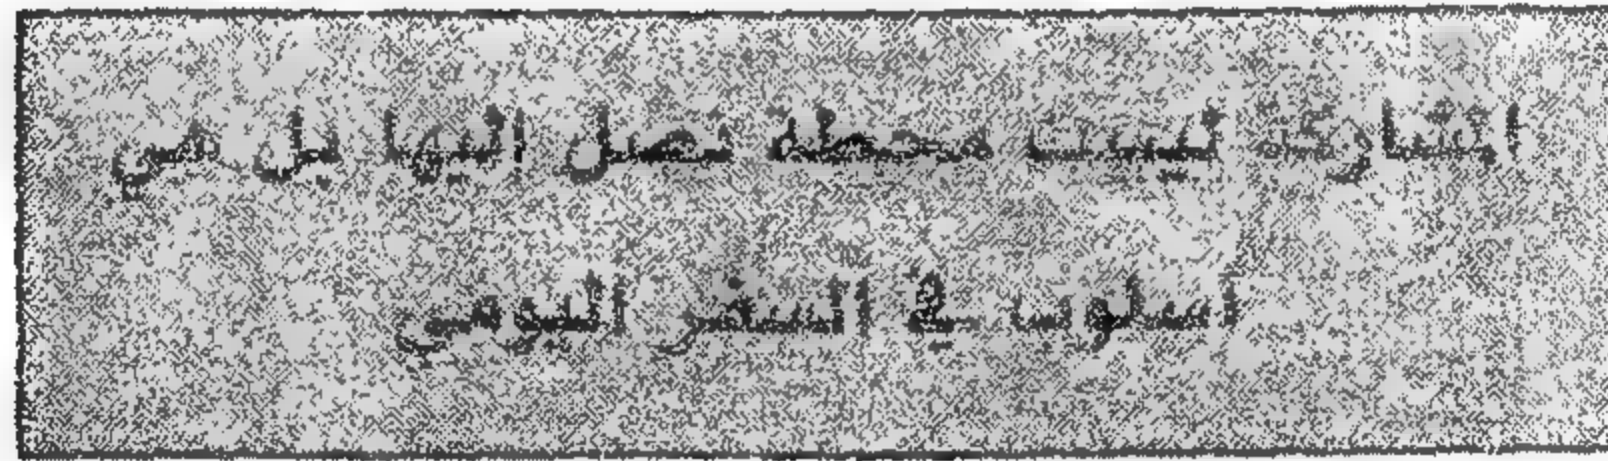 المشاركة ليست محطة نصل إليها بل هي
أسلوب في السفر اليومي